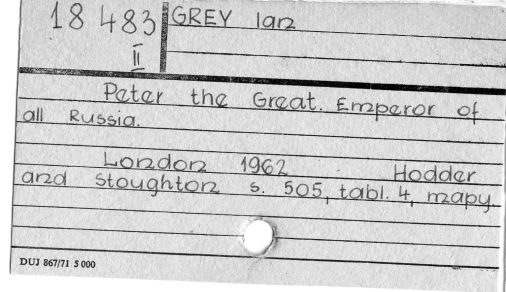 18 483 GREY Ian
II
Peter the Great. Emperor of
all Russia.
London 1962 Hodder
and Stoughton s. 505, tabl. 4, mapy.
DUJ 867/71 5 000